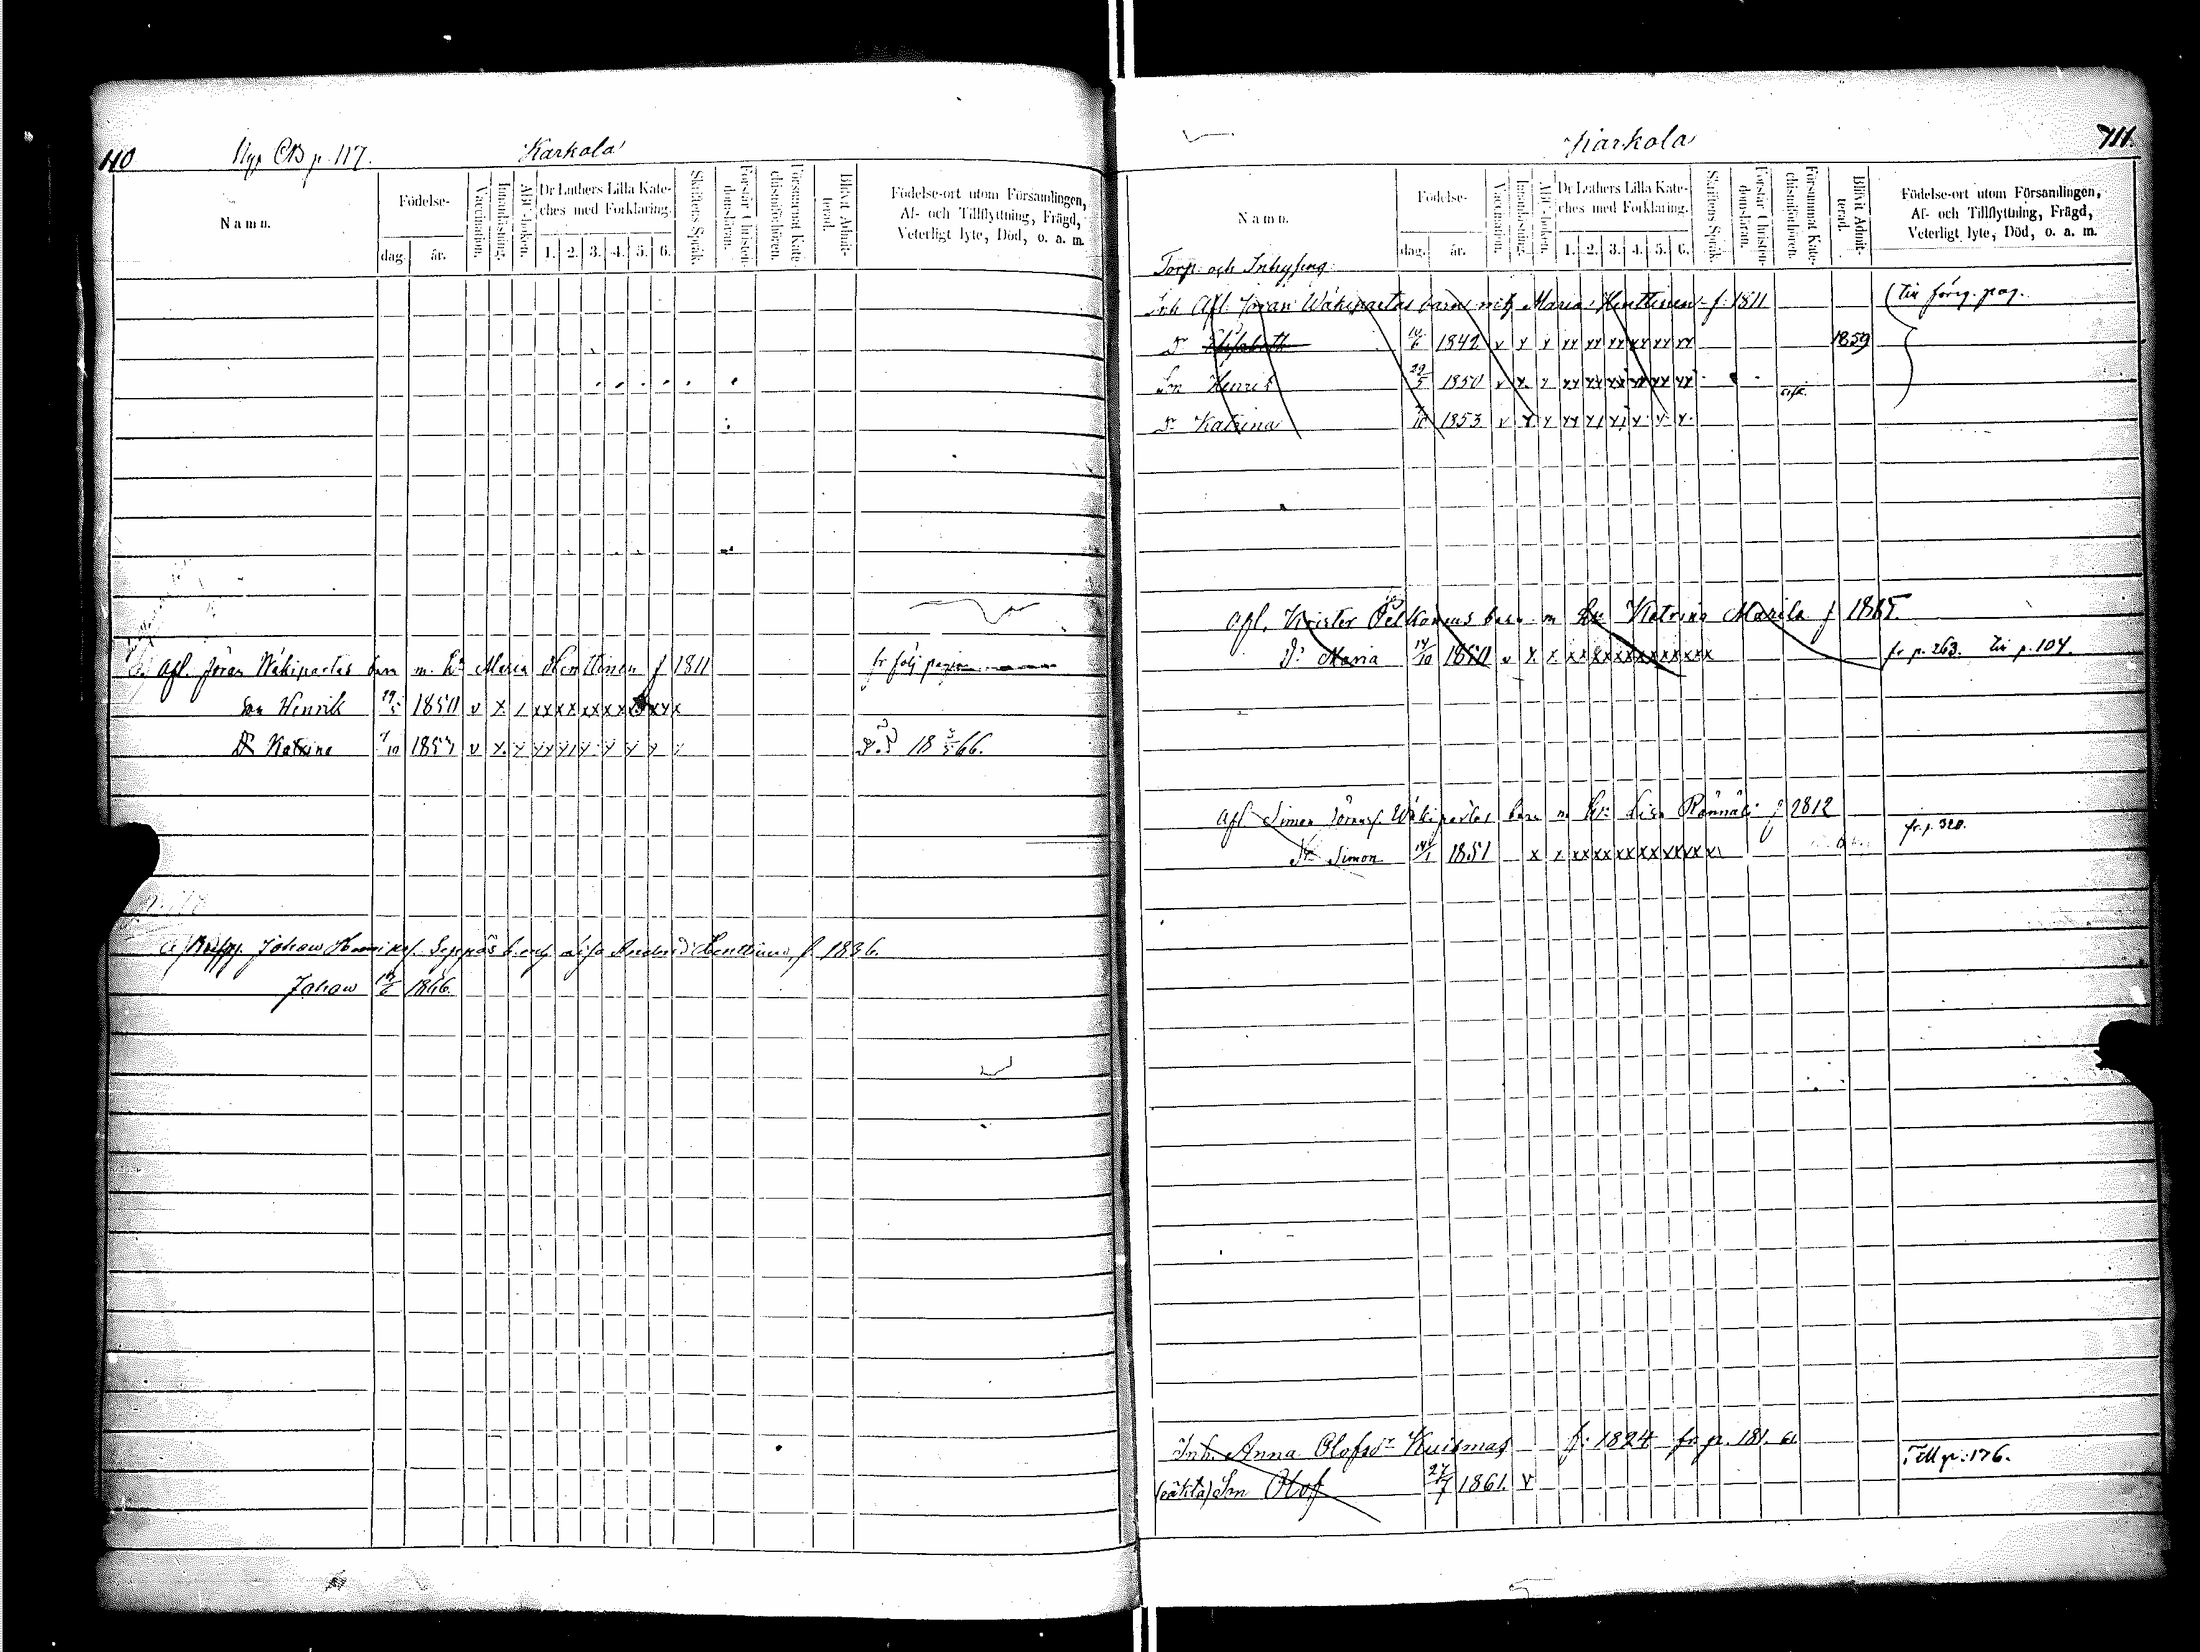 110 Nya CB p. 117. Karkola
Namn.
Födelse-
dag. år.
Vaccination.
Innanläsning.
Abc-boken.
Dr Luthers Lilla Kate-
ches med Förklaring.
1. 2. 3. 4. 5. 6.
Skriftens Språk.
Förstår Christen-
domsläran.
Försummat Kate-
chismiförhören.
Blivit Admit-
terad.
Födelse-ort utom Församlingen,
Af- och Tillflyttning, Frägd,
Veterligt lyte, Död, o. a. m.
Afl. Jöran Wäkipartas barn m. Maria Henttinen f 1811 fr följ pagina
Son Henrik 29/5 1850 v x x xx xx xx xx xx x
Dr Katrina 7/10 1853 v x x xx xx x x x x x Död 18 3/5 66.
Johan Henriksf. Seppäs b. m. Lisa Andersd. Henttinen, f. 1836.
Johan 1866.
Karkola 111.
Namn.
Födelse-
dag. år.
Vaccination.
Innanläsning.
Abc-boken.
Dr Luthers Lilla Kate-
ches med Förklaring.
1. 2. 3. 4. 5. 6.
Skriftens Språk.
Förstår Christen-
domsläran.
Försummat Kate-
chismiförhören.
Blivit Admit-
terad.
Födelse-ort utom Församlingen,
Af- och Tillflyttning, Frägd,
Veterligt lyte, Död, o. a. m.
Torp. och Inhysing.
Inh Afl. Jöran Wäkipartas barn m. Maria Henttinen f. 1811 Till förig. pag.
Dr Elisabeth 1842 v x x xx xx xx xx xx xx 1859
Son Henrik 29/5 1850 v x x xx xx xx xx xx xx
Dr Katrina 1853 v x x xx xx xx x x x
Afl. Krister Pelkonens barn m Katrina f
Dr Maria 14/10 1850 v x x xx xx xx xx xx xx fr p. 263. Till p. 104.
Afl Simon Wäkipartas barn m Lisa f 1812
Simon 1851 x x xx xx xx xx xx x fr. p. 320.
Inh. Anna Olofsdr Kuismas f. 1824 fr p. 181. 61
Till p. 176.
(oäkta) Son Olof 27/7 1861. v